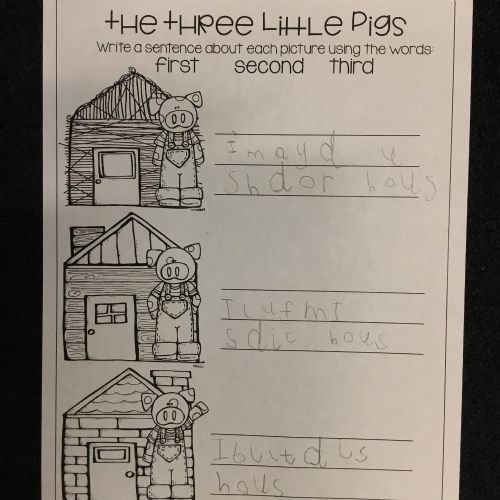 the three Little Pigs
Write a sentence about each picture using the words:
first second third
i mayd u
Shdor hous
I Lufmt
sdic hous
I buttd us
hous